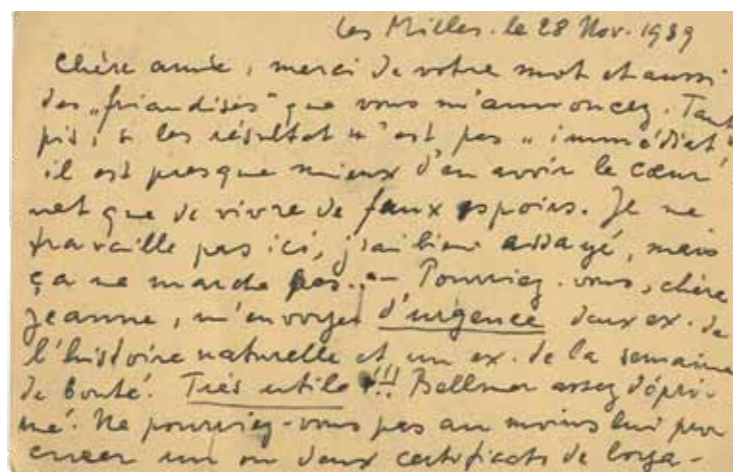 Les Milles. le 28 Nov. 1939
Chère amie, merci de votre mot et aussi
des „friandises" que vous m'annoncez. Tant
pis, si les résultat n'est pas „immédiat"
il est presque mieux d'en avoir le cœur
net que de vivre de faux espoirs. Je ne
travaille pas ici, j'ai bien essayé, mais
ça ne marche pas. — Pourriez-vous, chère
Jeanne, m'envoyer d'urgence deux ex. de
l'histoire naturelle et un ex. de la semaine
de bonté. Très utile !!! Bellmer assez dépri-
mé. Ne pourriez-vous pas au moins lui pro
curer un ou deux certificats de loya-